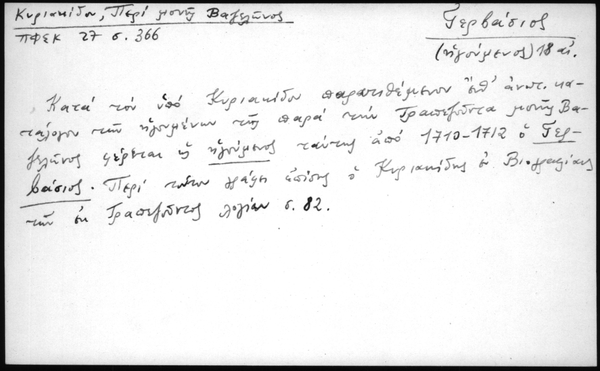 Κυριακίδου, Περί μονῆς Βαζελῶνος
ΠΦΕΚ 27 σ. 366
Γερβάσιος
(ἡγούμενος) 18 αἰ.
Κατά τόν ὑπό Κυριακίδου παρατιθέμενον ἔνθ' ἀνωτ. κα-
τάλογον τῶν ἡγουμένων τῆς παρά τήν Τραπεζοῦντα μονῆς Βα-
ζελῶνος φέρεται ὡς ἡγούμενος ταύτης ἀπό 1710-1712 ὁ Γερ-
βάσιος. Περί τούτου γράφει ἐπίσης ὁ Κυριακίδης ἐν Βιογραφίαις
τῶν ἐκ Τραπεζοῦντος λογίων σ. 82.